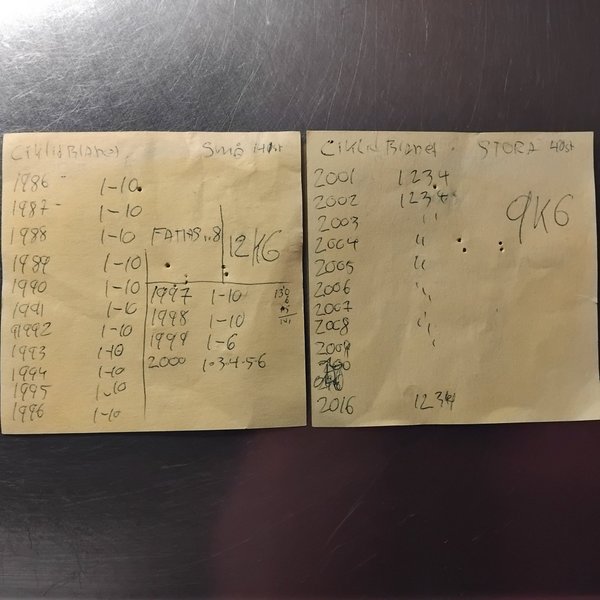 Ciklid Bladet Små 140st
1986 - 1-10
1987 - 1-10
1988 1-10
1989 1-10
1990 1-10
1991 1-10
1992 1-10
1993 1-10
1994 1-10
1995 1-10
1996 1-10
12KG
1997 1-10
1998 1-10
1999 1-6
2000 1.3.4.5.6
130
141
Ciklid Bladet STORA 40st
2001 1234
2002 1234
2003 "
2004 "
2005 "
2006 "
2007 "
2008 "
2009 "
2016 1234
9KG